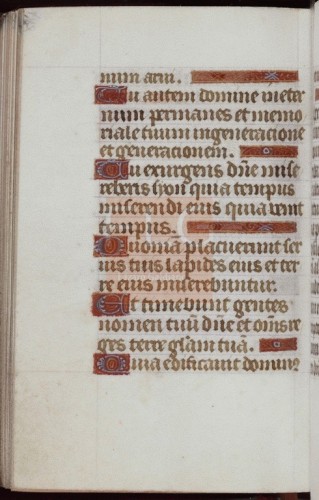 num arui.
Tu autem domine ineter
num permanes et memo
riale tuum ingeneracione
et generacionem.
Tu exurgens dn̄e mise
reberis syon quia tempus
miserendi eius quia venit
tempus.
Quoniā placuerunt ser
uis tuis lapides eius et ter
re eius miserebuntur.
Et timebunt gentes
nomen tuū dn̄e et om̄s re
ges terre gl̄am tuā.
Quia edificauit dominꝰ